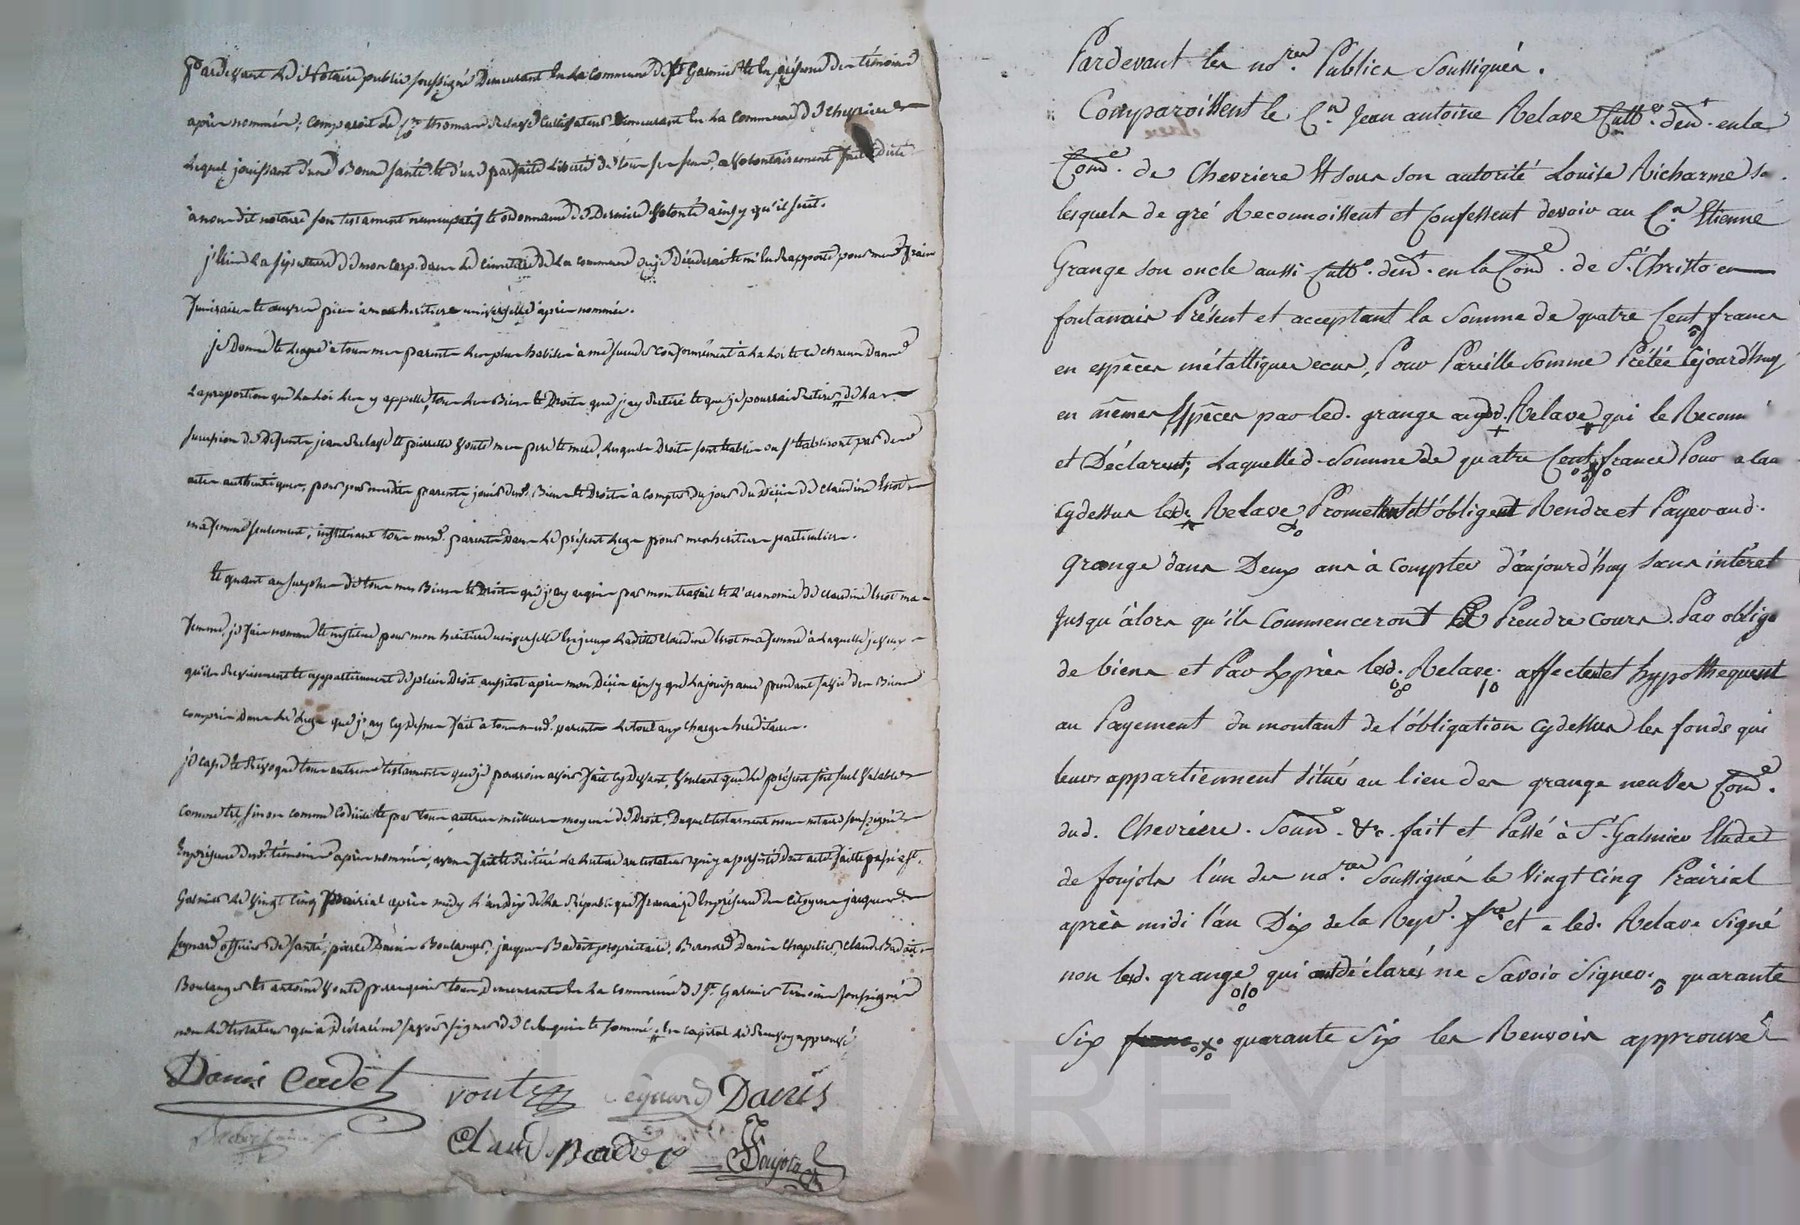 Pardevant le dit Notaire public soussigné demeurant en la commune de St Galmier et en présence des témoins
après nommés, comparoit le Cn thomas Relave Cultivateur demeurant en la commune de Chevrieres
Lequel jouissant d'une Bonne santé et d'une parfaite Liberté de tous ses sens, a Volontairement fait et dicté
à nous dit notaire son testament nuncupatif et ordonnance de Derniere Volonté ainsy qu'il suit.
j'Elis la sépulture de mon corps dans le cimetière de la commune où je Décéderai et m'en Rapporte pour mes frais
funéraires et œuvres pies à mon heritiere universelle après nommée.
je Donne et Legue à tous mes parents Les plus habiles à me succeder conformément à la Loi et à chacun dans
La proportion que la Loi Les y appelle, tous Les Biens et Droits que j'ay Retiré et que je pourrai Retirer de La
succession de Défunts jean Relave et pierrette Vouté mes pere et mere, Lesquels Droits sont Etablis ou s'établiront par des
actes authentiques, pour par mesdits parents jouir desd. Biens et Droits à compter du jour du Décès de claudine
ma femme seulement, instituant tous mesd. parents Dans le présent Legs pour mes heritiers particuliers.
Et quant au surplus de tous mes Biens et Droits que j'ay acquis par mon travail et L'économie de claudine ma
femme, je fais nomme et institue pour mon heritiere universelle Ladite claudine ma femme à Laquelle je veux
qu'ils Reviennent et appartiennent de plein Droit aussitot après mon Décès ainsy que La jouissance pendant sa vie des Biens
compris Dans Le Legs que j'ay cy Dessus fait à tous mesd. parents Le tout aux charges héréditaires.
je casse et Révoque tous autres testaments que je pourrois avoir fait cy Devant, Voulant que Le présent soit seul Valable
comme tel, sinon comme Codicille et par tous autres meilleurs moyens de Droit. Duquel testament nous notaire soussigné
En présence des témoins après nommés, avons fait et Réitéré La Lecture au testateur qui y a persisté Dont acte fait et passé à St.
Galmier Le Vingt Cinq Prairial après midy L'an dix de La République française En présence des Citoyens jacques
Eynard officier de santé, pierre Danis Boulanger, jacques Badoit propriétaire, Bernard Danis Chapelier, Claude Badoit
Boulanger et antoine Vouté perruquier tous Demeurants En La commune de St. Galmier témoins soussignés
non Le testateur qui a Déclaré ne savoir signer de ce Enquis et sommé.
Danis Cadet Voute Eynard Danis
Claude Badoit Foujols
Pardevant les nores Publics Soussignés.
Comparoissent le Cn Jean antoine Relave Cultr demt en la
Come de Chevriere Et sous son autorité Louise Richarme sa
lesquels de gré Reconnoissent et Confessent devoir au Cn Etienne
Grange son oncle aussi Cultr demt en la Come de St Christo en
fontanais Présent et acceptant la Somme de quatre Cent francs
en espèces métalliques ecus, Pour Pareille Somme Prêtée cejourd'huy
en mêmes Espèces par led. grange aud. Relave qui le Reconn
et Déclarent, Laquelle d. Somme de quatre Cent francs Pour e la
Cydessus led. Relave Promettent et s'obligent Rendre et Payer aud.
grange dans Deux ans à compter d'aujourd'huy sans intérêt
Jusqu'alors qu'ils commenceront de Prendre cours. Par oblige
de biens et Par Exprès led. Relave affectent et hypothequent
au Payement du montant de l'obligation cydessus les fonds qui
leurs appartiennent Situés au lieu des grange neuves Come
dud. Chevriere. Soum. &c. fait et Passé à St Galmier Etude
de foujols l'un des nores Soussignés le Vingt Cinq Prairial
après midi l'an Dix de la Repe fse et a led. Relave Signé
non led. grange qui ont déclarés ne Savoir Signer. quarante
Six quarante Six les Renvois approuvé